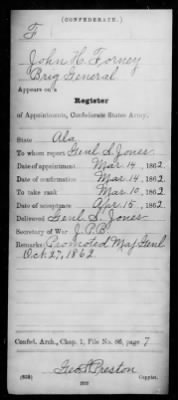 (CONFEDERATE.)
F
John H. Forney
Brig General
Appears on a
Register
of Appointments, Confederate States Army.
State Ala
To whom report Genl S. Jones
Date of appointment Mar 14, 1862.
Date of confirmation Mar 14, 1862.
To take rank Mar 10, 1862.
Date of acceptance Apr. 15, 1862.
Delivered Genl S. Jones
Secretary of War J.P.B.
Remarks Promoted Maj Genl
Oct. 27, 1862
Confed. Arch., Chap. 1, File No. 86, page 7
Geo H Preston
(635) Copyist.